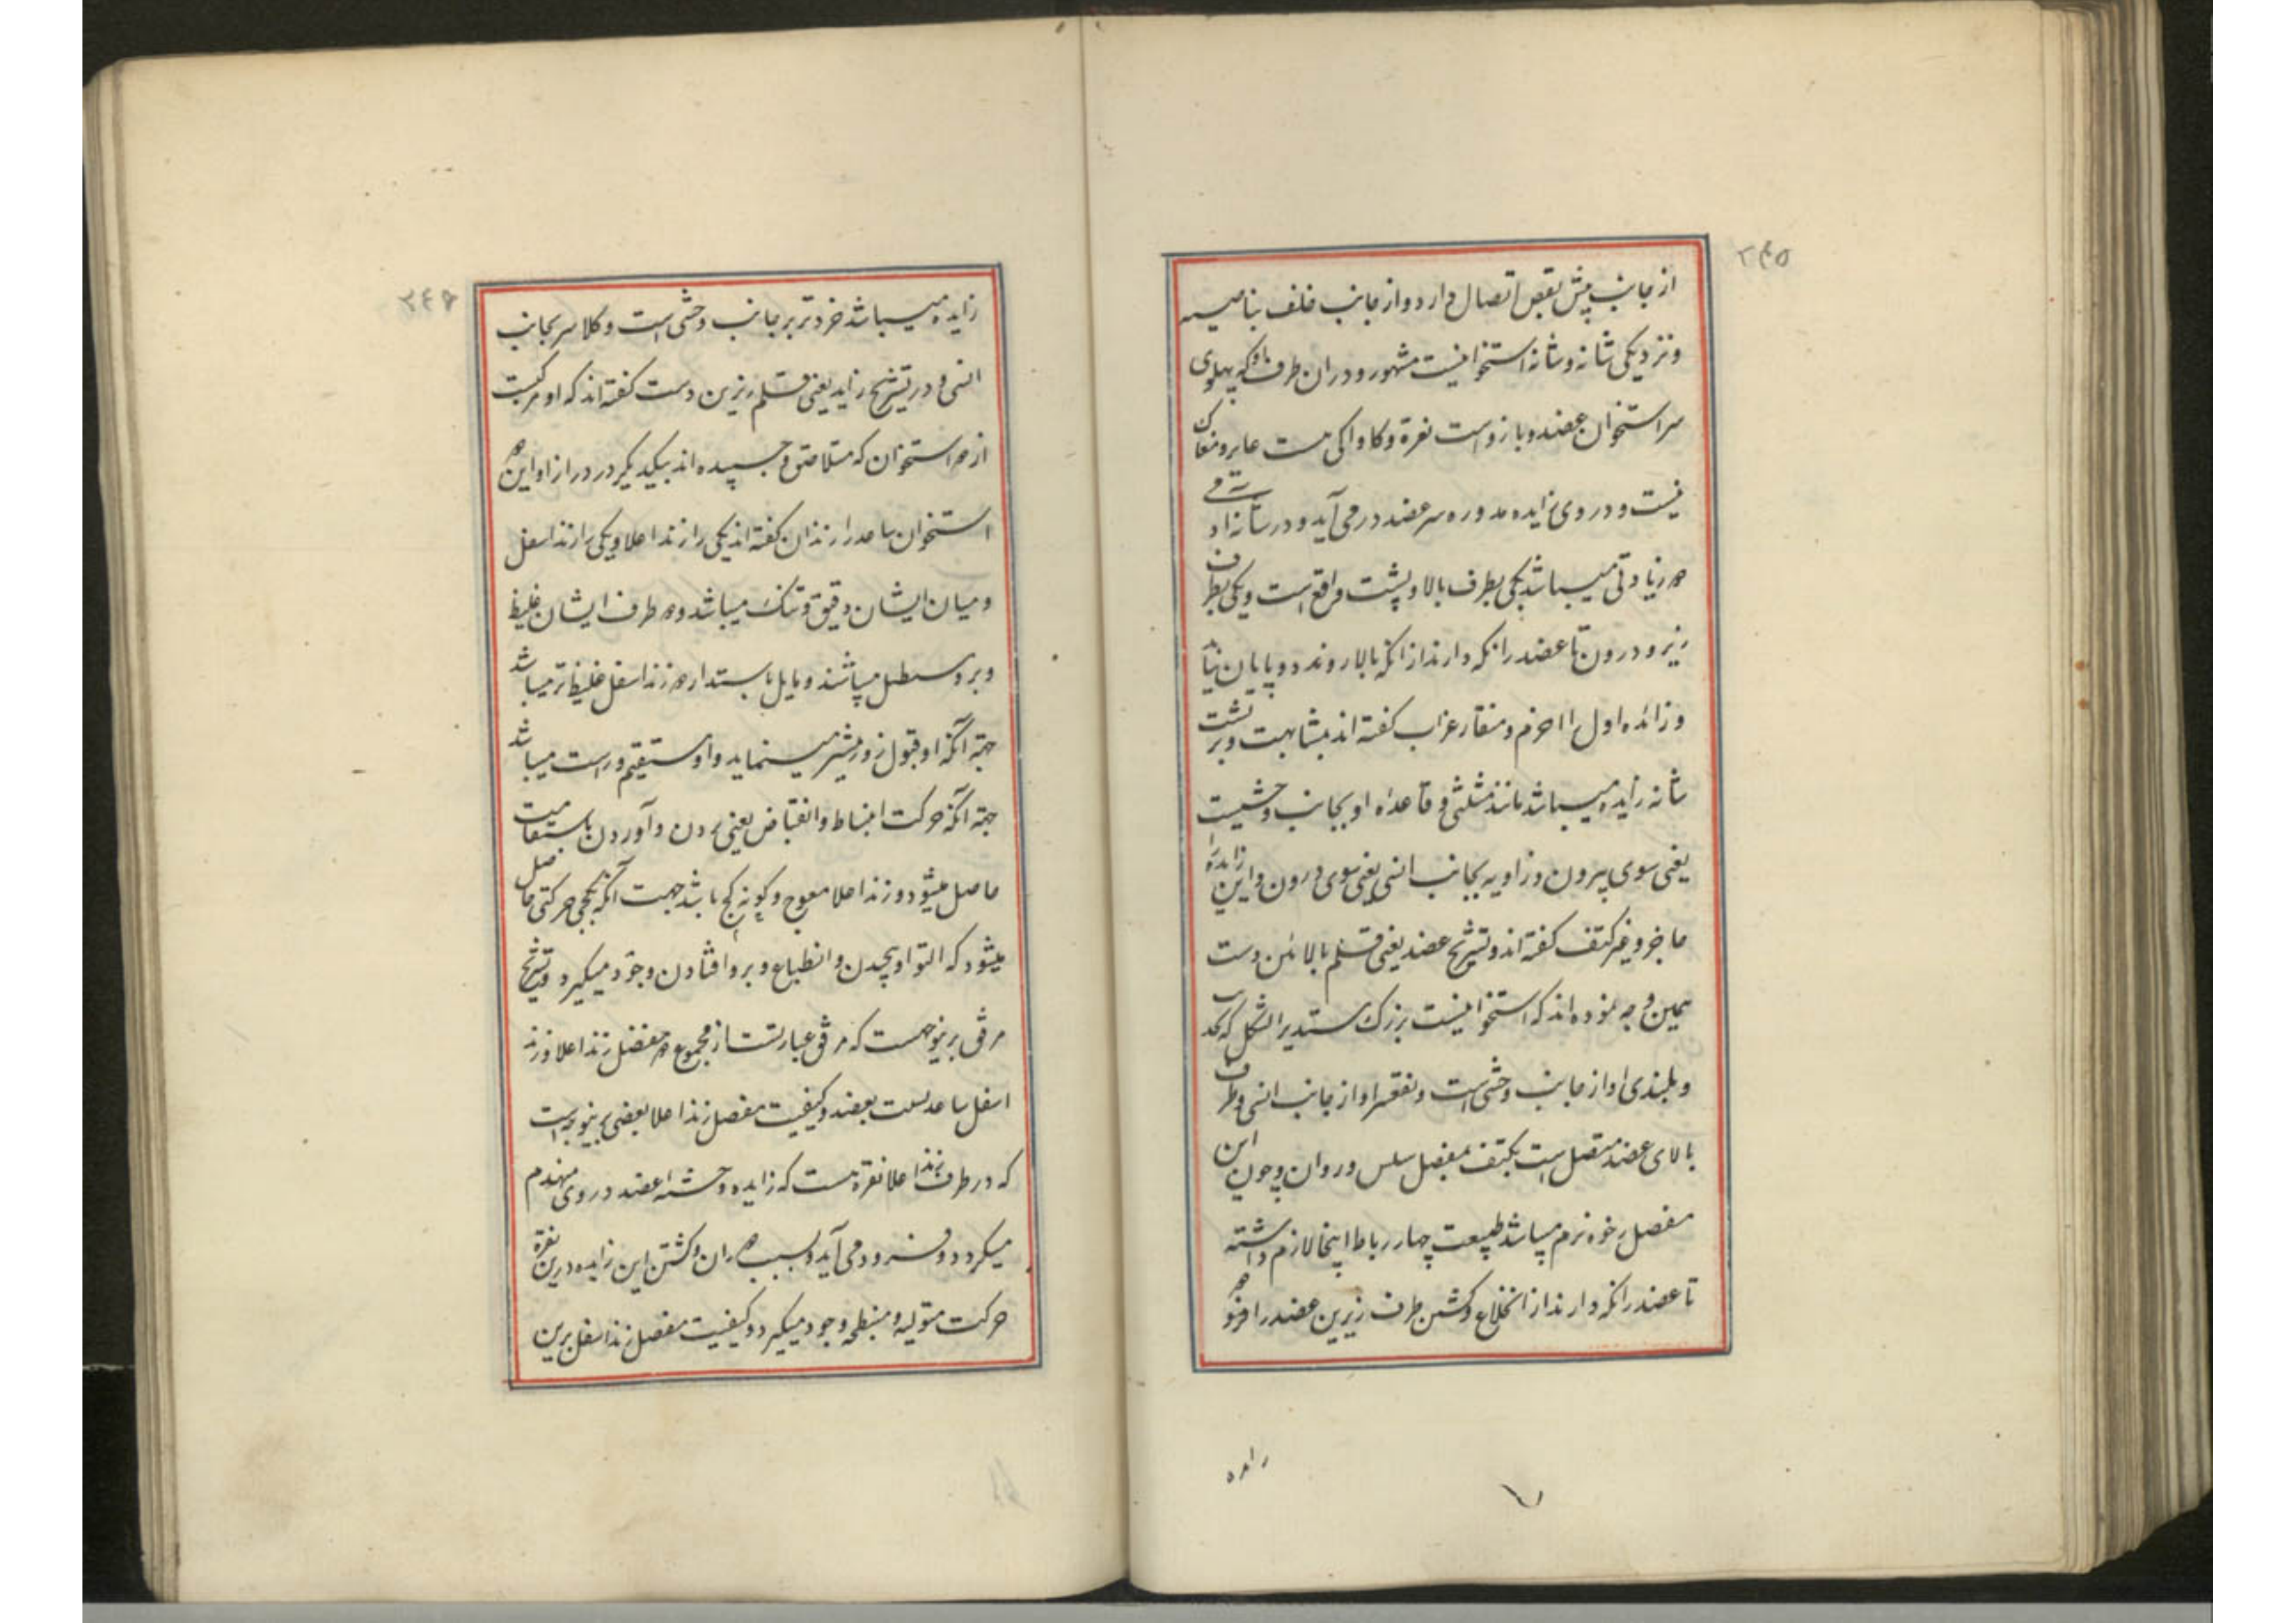 ۲۴۵
از جانب پیش بقص اتصال دارد و از جانب خلف بنامیسه
و نزدیکی شانه و شانه استخوانیست مشهور و در ان طرف او که پهلوی
سر استخوان عضد و بازوست نقرة و کاواکی هست غایر و مغاک
نیست و در وی زایده مدوره سر عضد در می آید و در شانه از او
دو زیادتی میباشد یکی بطرف بالا و پشت واقع است و یکی بطرف
زیر و درون تا عضد را نکه دارند از انکه بالا روند و پایان نیاید
و زائده اول را اخرم و منقار غراب کفته اند بمشابهت و بر پشت
شانه زایده میباشد مانند مثلثی و قاعده او بجانب وحشیست
یعنی سوی بیرون و زاویه بجانب انسی یعنی سوی درون و این زایده را
حاجز و عیر کتف کفته اند و تشریح عضد یعنی قلم بالائین دست
بهمین وجه نموده اند که استخوانیست بزرک مستدیر الشکل که تحدب
و بلندی او از جانب وحشی است و تقعر او از جانب انسی و طرف
بالای عضد متصل است بکتف بمفصل سلس و روان و چون این
مفصل رخوه نرم میباشد طبیعت چهار رباط اینجا لازم داشته
تا عضد را نکه دارند از انخلاع و کشتن طرف زیرین عضد را افزو دو
زایده
۲۴۶
زایده میباشد خردتر بر جانب وحشی است و کلانتر بجانب
انسی و در تشریح زاید یعنی قلم زیرین دست کفته اند که او مرکبست
از دو استخوان که متلاصق و چسپیده اند بیکدیکر در درازا و این دو
استخوان ساعد را زندان کفته اند یکی را زند اعلا و یکی را زند اسفل
و میان ایشان دقیق و تنک میباشد و دو طرف ایشان غلیظ
و بر دو مستطیل میباشند و مایل باستداره و زند اسفل غلیظ تر میباشد
جهة آنکه او قبول زور بیشتر مینماید و او مستقیم و راست میباشد
جهة آنکه حرکت انبساط و انقباض یعنی بردن و آوردن باستقامت
حاصل میشود و زند اعلا معوج و کونه کج باشد جهت آنکه بکجی حرکتی حاصل
میشود که التوا و پیچدن و انطباع و برو افتادن وجود میکیرد و تشریح
مرفق برینوجهست که مرفق عبارتست از مجموع دو مفصل زند اعلا و زند
اسفل ساعدست بعضد و کیفیت مفصل زند اعلا بعضد برینوجه است
که در طرف زند اعلا نقرة هست که زایده وحشیه عضد در وی مهندم
میکردد و فرود می آید و بسبب دوران و کشتن این زایده درین نقرة
حرکت متولیه و منبطحه وجود میکیرد و کیفیت مفصل زند اسفل برین